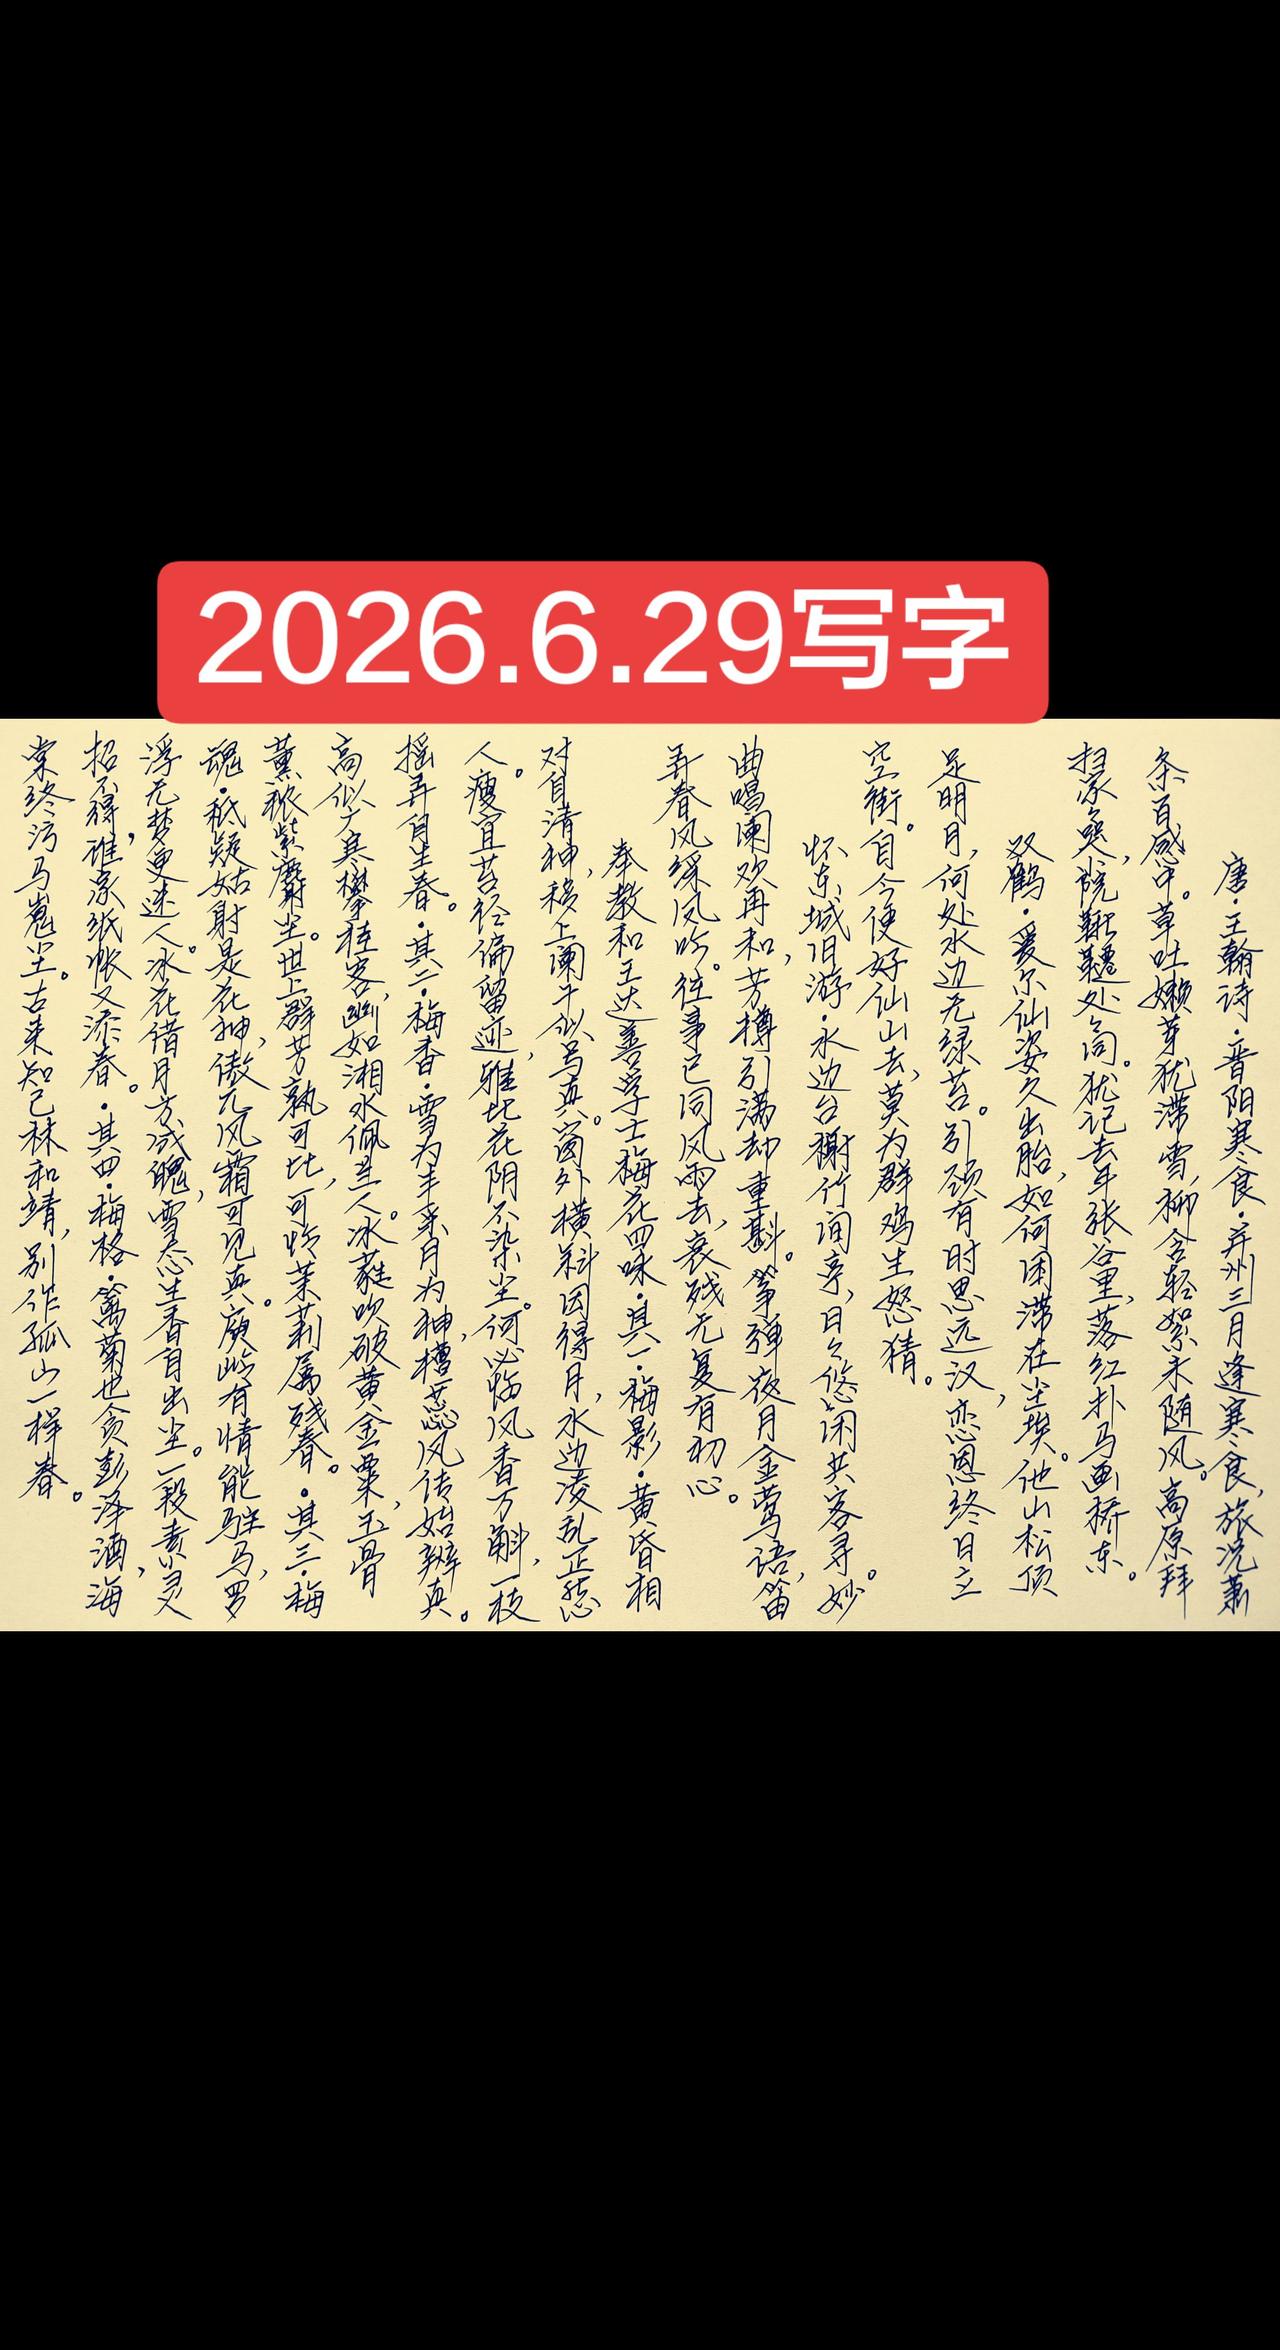 2026.6.29写字
唐·王翰诗·晋阳寒食·并州三月逢寒食,旅况萧
条百感中。草吐嫩芽犹滞雪,柳含轻絮未随风。高原拜
扫家家奂,院鞦韆处处同。犹记去年张谷里,落红扑马画桥东。
双鹤·爱尔仙姿久出胎,如何困滞在尘埃。他山松顶
足明月,何处水边无绿苔。引颈有时思远汉,恋恩终日立
空街。自今便好仙山去,莫为群鸡生怒猜。
怀东城旧游·水边台榭竹间亭,日日悠闲共客寻。妙
曲唱阑欢再和,芳樽引满劫重斟。筝弹夜月金莺语,笛
弄春风彩凤吟。往事已同风雨去,衰残无复有初心。
奉教和王达善学士梅花四咏·其一·梅影·黄昏相
对自清神,移上阑干似写真。窗外横斜因得月,水边凌乱正愁
人。瘦宜苔径偏留迹,雅比花阴不染尘。何必临风香万斛,一枝
摇弄自生春。·其二·梅香·雪为丰采月为神,檐蕊风传始辨真。
高似广寒攀桂客,幽如湘水佩兰人。冰蕤吹破黄金粟,玉骨
薰秾紫麝尘。世上群芳孰可比,可怜茉莉属残春。·其三·梅
魂·秪疑姑射是花神,傲兀风霜可见真。庾岭有情能驻马,罗
浮无梦更迷人。冰花借月方成魄,雪态生香自出尘。一段素灵
招不得,谁家纸帐又添春。·其四·梅格·篱菊也贪彭泽酒,海
棠终污马嵬尘。古来知己林和靖,别作孤山一样春。